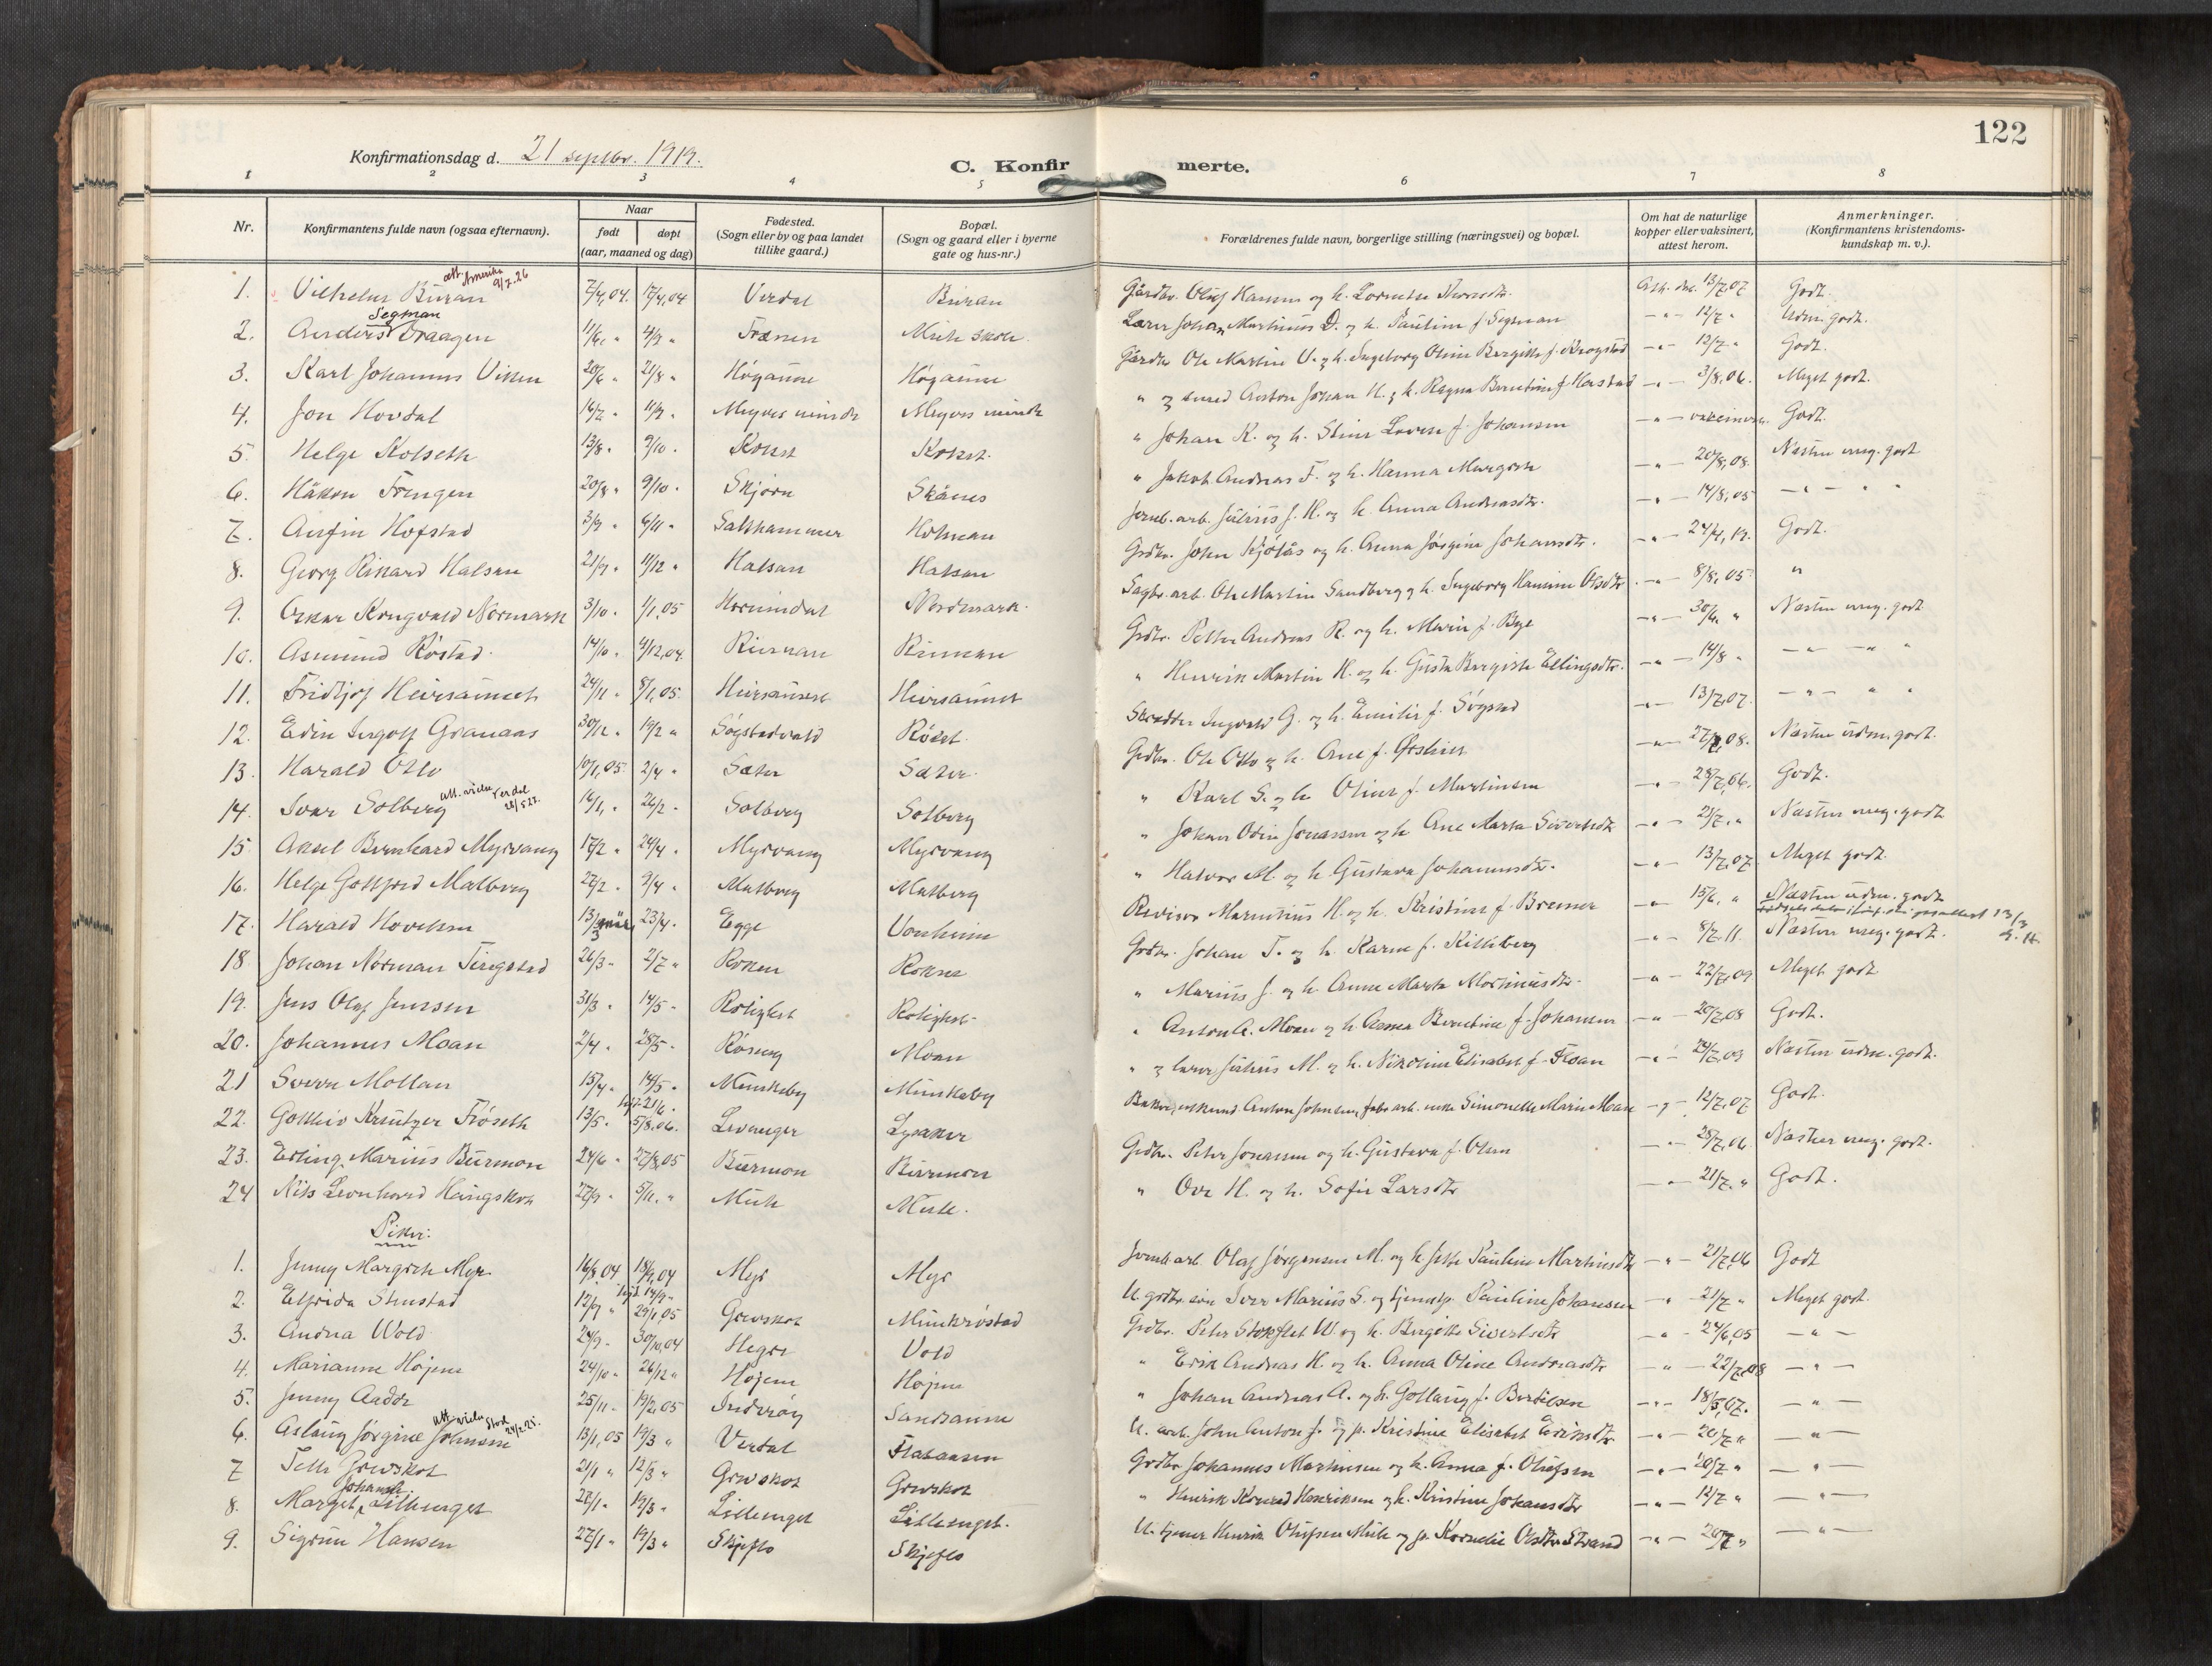 122
Konfirmationsdag d. 21 septbr. 1919.
C. Konfir merte.
1 2 3 4 5 6 7 8
Nr.
Konfirmantens fulde navn (ogsaa efternavn).
Naar
født døpt
(aar, maaned og dag)
Fødested.
(Sogn eller by og paa landet
tillike gaard.)
Bopæl.
(Sogn og gaard eller i byerne
gate og hus-nr.)
Forældrenes fulde navn, borgerlige stilling (næringsvei) og bopæl.
Om hat de naturlige
kopper eller vaksinert,
attest herom.
Anmerkninger.
(Konfirmantens kristendoms-
kundskap m. v.).
att. Amerika 9/7.26
1. Vilhelm Buran 7/4,04. 17/4,04 Verdal Buran 13/7,07 Godt.
Segman
2. Anders Draagen 11/6, " 4/9 " Frænen Mule skole Lærer Johan Martinus D. og h. Pauline f. Segman -"- 12/7 " Udm. godt.
3. Karl Johannes Viken 20/6 " 21/8 " Høgaune Høgaune Gårdbr. Ole Martin V. og h. Ingeborg Oline Bergitte f. Krogstad -"- 12/7 " Godt.
4. Jon Hovdal 16/7 " 11/9 " Meyers minde Meyers minde " og smed Anton Johan H. og h. Ragna Berntine f. Hastad -"- 3/8,06. Meget godt.
5. Helge Kolseth 13/8 " 9/10 " Kolset Kolset. " Johan K. og h. Stine Lovise f. Johansen -"- Godt.
6. Håkon Tringen 20/8 " 9/10 " Skjørn Skånes " Jakob Andreas T. og h. Hanna Margrete -"- 20/8,08. Næsten meg. godt
7. Anfin Hofstad 3/9 " 6/11 " Salthammer Holman Jernb. arb. Julius J. H. og h. Anna Andreasdtr. -"- 14/8,05 -"- " "
8. Georg Rikard Halsan 21/9 " 11/12 " Halsan Halsan Grdbr. John Kjølås og h. Anna Jørgine Johansdtr. -"- 24/4,19. Godt.
9. Oskar Kongvald Normark 3/10 " 1/1,05 Hornindal Nordmark. Sagbr. arb. Ole Martin Sandberg og h. Ingeborg Hansine Olsdtr. -"- 8/8,05 "
10. Asmund Røstad 14/10 " 4/12,04. Rinnan Rinnan Grdbr. Petter Andreas R. og h. Marie f. Bye -"- 30/6, " Næsten meg. godt
11. Fridtjof Heirsaunet 24/11 " 8/1,05. Heirsaunet Heirsaunet " Henrik Martin H. og h. Gusta Bergitte Ellingsdtr. -"- 14/8 " -"- -"- "
12. Edin Ingolf Granaas 30/12 " 19/2 " Søgstadvald Røset Skrædder Ingvald G. og h. Emilie f. Søgstad -"- 13/7,07. -"- " "
13. Harald Otlo 10/1,05. 2/4 " Sæter Sæter. Grdbr. Ole Otlo og h. Ane f. Ørstine -"- 27/7,08. Næsten udm. godt.
att. vielse Verdal 28/5 27.
14. Ivar Solberg 16/1, " 26/2 " Solberg Solberg " Karl S. og h. Oline f. Martinsen -"- 28/7,06. Godt.
15 Aksel Bernhard Myrvang 17/2 " 24/4 " Myrvang Myrvang " Johan Odin Jonassen og h. Ane Marta Sivertsdtr -"- 21/7 " Næsten meg. godt
16. Helge Gotfred Malberg 27/2 " 9/4 " Malberg Malberg " Halvor M. og h. Gustava Johannesdtr. -"- 13/7,07 Meget godt.
17. Harald Hovelsen 13/3 " 23/4 " Egge Vonheim Revisor Marentius H. og h. Kristine f. Bremer -"- 15/6, " Næsten udm. godt
18. Johan Norman Tingstad 26/3 " 2/7 " Rokne Rokne Grdbr. Johan T. og h. Karen f. Killiberg -"- 8/7,11. Næsten meg. godt.
19. Jens Olaf Jenssen 31/3 " 14/5 " Rolighet Rolighet " Marius J. og h. Anne Marta Martinusdtr. -"- 22/7,09 Meget godt
20. Johannes Moan 2/4 " 28/5 " Røseng Moan " Anton A. Moan og h. Anna Berntine f. Johansen -"- 20/7,08 Godt.
21 Sverre Mollan 15/4 " 14/5 " Munkeby Munkeby " og lærer Julius M. og h. Nikoline Elisabet f. Floan -"- 24/7,09 Næsten udm. godt.
22. Gotthiv Kreutzer Frøseth 13/5 " 5/8.06. Levanger Lysaker Anton Johnsen, fabr. arb. enke Simonelle Marie Moan -"- 12/7,07 Godt.
23. Erling Marius Burmon 24/6 " 27/8,05 Burmon Burmon Grdbr. Peter Jonassen og h. Gustava f. Olsen -"- 28/7,06 Næsten meg. godt.
24 Nils Leonhard Haugskot 27/9 " 5/11, " Mule Mule. " Ove H. og h. Sofie Larsdtr -"- 21/7. " Godt.
Piker:
1. Jenny Margrete Myr 16/8,04 18/9,04 Myr Myr Jernb. arb. Olaf Jørgensen M. og h. Jette Pauline Martinsdtr -"- 21/7,06 Godt
2. Elfrida Stenstad 12/9 " 29/1,05 Grevskot Munkrøstad U. grdbr. søn Iver Marius S. og tjenestp. Pauline Johansen -"- 21/7 " Meget godt.
3. Andrea Wold 24/9 " 30/10,04 Hegre Vold Grdbr. Peter Stokflet W. og h. Birgitte Sivertsdtr -"- 24/6,05 -"-
4. Marianne Højem 24/10 " 26/12 " Højem Højem " Erik Andreas H. og h. Anna Oline Andreasdtr -"- 22/7,08 -"-
5. Jenny Aadde 25/11 " 19/2,05 Inderøy Sandaune " Johan Andreas A. og h. Gollaug f. Bertilsen -"- 18/5,07. -"-
att. vielse Stod 24/2.25.
6. Aslaug Jørgine Johnsen 13/1,05 19/3 " Verdal Flataasen U. arb. John Anton J. og p. Kristine Elisabet Eriksdtr -"- 20/7 " -"-
7 Grevskot 21/1 " 12/3 " Grevskot Grevskot Grdbr. Johannes Martinsen og h. Anna f. Olufsen -"- 20/7 " -"-
8. Marget Lillenget 22/1 " 19/3 " Lillenget Lillenget. " Henrik Konrad Henriksen og h. Kristine Johansdtr -"- 12/7 " -"-
9. Sigrun Hansen 27/1 " 19/3 " Skjeflo Skjeflo U. tjener Henrik Olufsen Mule og p. Kornelie Olsdtr Strand -"- 20/7 " -"-